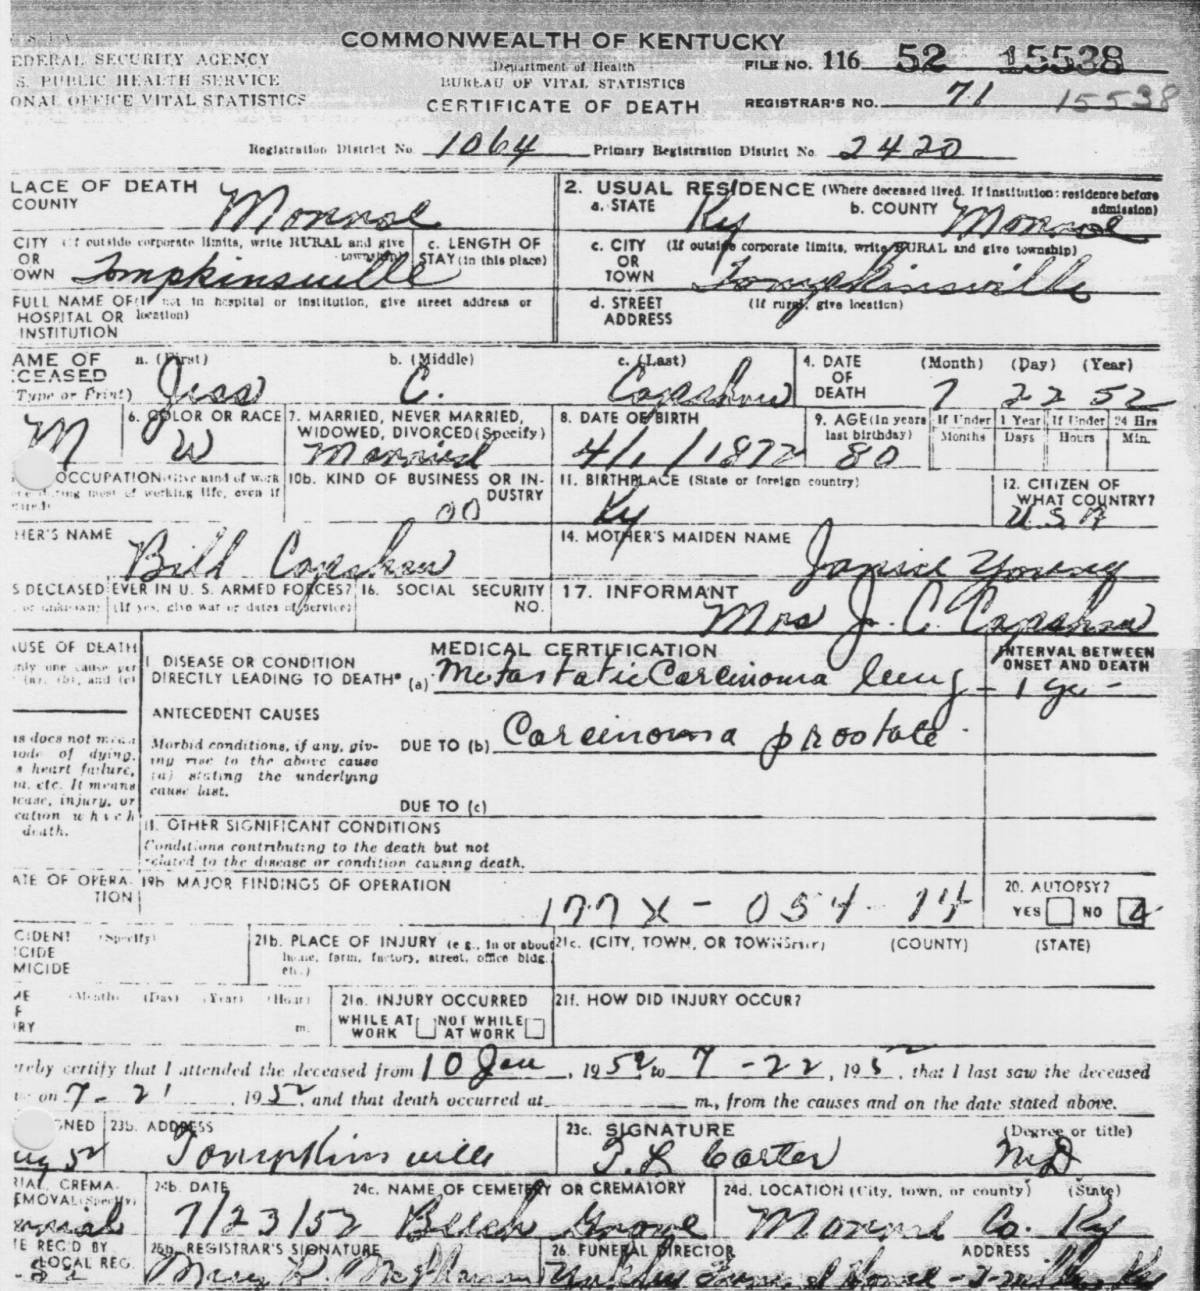 COMMONWEALTH OF KENTUCKY
EDERAL SECURITY AGENCY
Department of Health
FILE NO. 116 52 15538
S. PUBLIC HEALTH SERVICE
BUREAU OF VITAL STATISTICS
ONAL OFFICE VITAL STATISTICS
CERTIFICATE OF DEATH
REGISTRAR'S NO. 71 15538
Registration District No. 1064 Primary Registration District No. 2420
LACE OF DEATH
COUNTY Monroe
2. USUAL RESIDENCE (Where deceased lived. If institution: residence before admission)
a. STATE Ky b. COUNTY Monroe
CITY (If outside corporate limits, write RURAL and give township)
OR
OWN Tompkinsville
c. LENGTH OF
STAY (in this place)
c. CITY (If outside corporate limits, write RURAL and give township)
OR
TOWN Tompkinsville
FULL NAME OF (If not in hospital or institution, give street address or
HOSPITAL OR location)
INSTITUTION
d. STREET (If rural, give location)
ADDRESS
AME OF a. (First) b. (Middle) c. (Last)
CEASED
Type or Print) Jess C. Capshaw
4. DATE (Month) (Day) (Year)
OF
DEATH 7 22 52
M
6. COLOR OR RACE
W
7. MARRIED, NEVER MARRIED,
WIDOWED, DIVORCED (Specify)
Married
8. DATE OF BIRTH
4/1/1872
9. AGE (In years
last birthday)
80
If Under 1 Year If Under 24 Hrs
Months Days Hours Min.
OCCUPATION (Give kind of work
during most of working life, even if
10b. KIND OF BUSINESS OR IN-
DUSTRY
00
11. BIRTHPLACE (State or foreign country)
Ky
12. CITIZEN OF
WHAT COUNTRY?
USA
HER'S NAME
Bill Capshaw
14. MOTHER'S MAIDEN NAME
Janice Young
S DECEASED EVER IN U. S. ARMED FORCES?
or unknown) (If yes, give war or dates of service)
16. SOCIAL SECURITY
NO.
17. INFORMANT
Mrs J. C. Capshaw
AUSE OF DEATH
nly one cause per
(a), (b), and (c)
MEDICAL CERTIFICATION
INTERVAL BETWEEN
ONSET AND DEATH
I DISEASE OR CONDITION
DIRECTLY LEADING TO DEATH* (a) Metastatic Carcinoma lung - 1 yr -
ANTECEDENT CAUSES
Morbid conditions, if any, giv-
ing rise to the above cause
(a) stating the underlying
cause last.
DUE TO (b) Carcinoma prostate
DUE TO (c)
is does not mean
mode of dying,
s heart failure,
ia, etc. It means
ease, injury, or
cation which
death.
II. OTHER SIGNIFICANT CONDITIONS
Conditions contributing to the death but not
related to the disease or condition causing death.
ATE OF OPERA-
TION
19b MAJOR FINDINGS OF OPERATION
177X - 054 - 14
20. AUTOPSY?
YES NO
CIDENT (Specify)
ICIDE
MICIDE
21b. PLACE OF INJURY (e g., in or about
home, farm, factory, street, office bldg.
etc.)
21c. (CITY, TOWN, OR TOWNSHIP) (COUNTY) (STATE)
ME (Month) (Day) (Year) (Hour)
F
RY m.
21e. INJURY OCCURRED
WHILE AT NOT WHILE
WORK AT WORK
21f. HOW DID INJURY OCCUR?
reby certify that I attended the deceased from 10 Jan, 1952, to 7-22, 1952, that I last saw the deceased
on 7-21, 1952, and that death occurred at m., from the causes and on the date stated above.
GNED
23b. ADDRESS
Tompkinsville
23c. SIGNATURE (Degree or title)
T L Carter MD
IAL, CREMA-
EMOVAL (Specify)
24b. DATE
7/23/52
24c. NAME OF CEMETERY OR CREMATORY
Beech Grove
24d. LOCATION (City, town, or county) (State)
Monroe Co. Ky
TE REC'D BY
LOCAL REG.
25b. REGISTRAR'S SIGNATURE
26. FUNERAL DIRECTOR ADDRESS
Funeral Home - T-ville, Ky